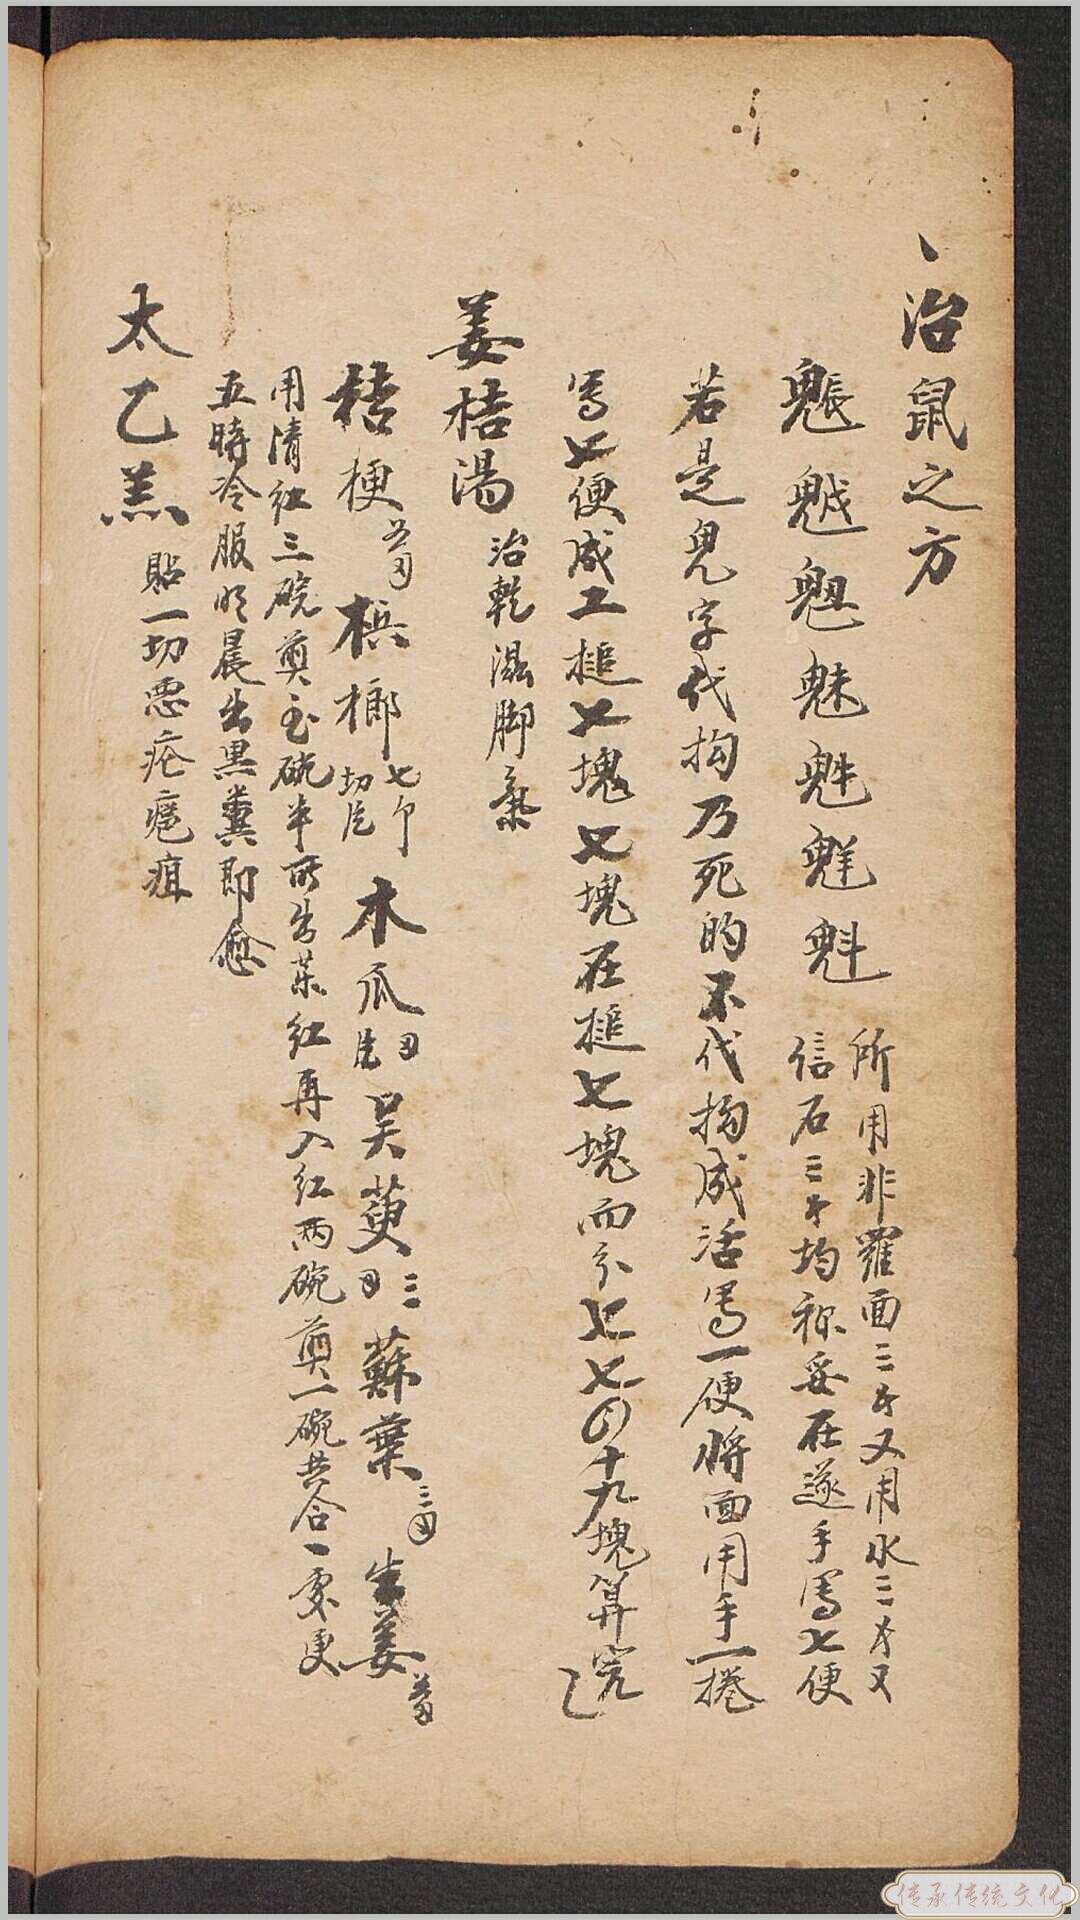 治鼠之方
魁
所用非羅面三才又用水三才又
信石三才均称妥在遂手写七便
若是鬼字代抅乃死的不代抅成活写一便將面用手一捲
写七便成工槌七塊又塊在槌七塊而分七七四十九塊算完
姜桔湯 治乾濕脚氣
桔梗 梹榔 七 切片 木瓜 片 吴萸 三 蘇葉 三 生姜
用清红三碗煎至碗半所出茶红再入红两碗煎一碗共合一处更
五時冷服明晨出黑糞即愈
太乙羔 貼一切恶疮疽
传承传统文化